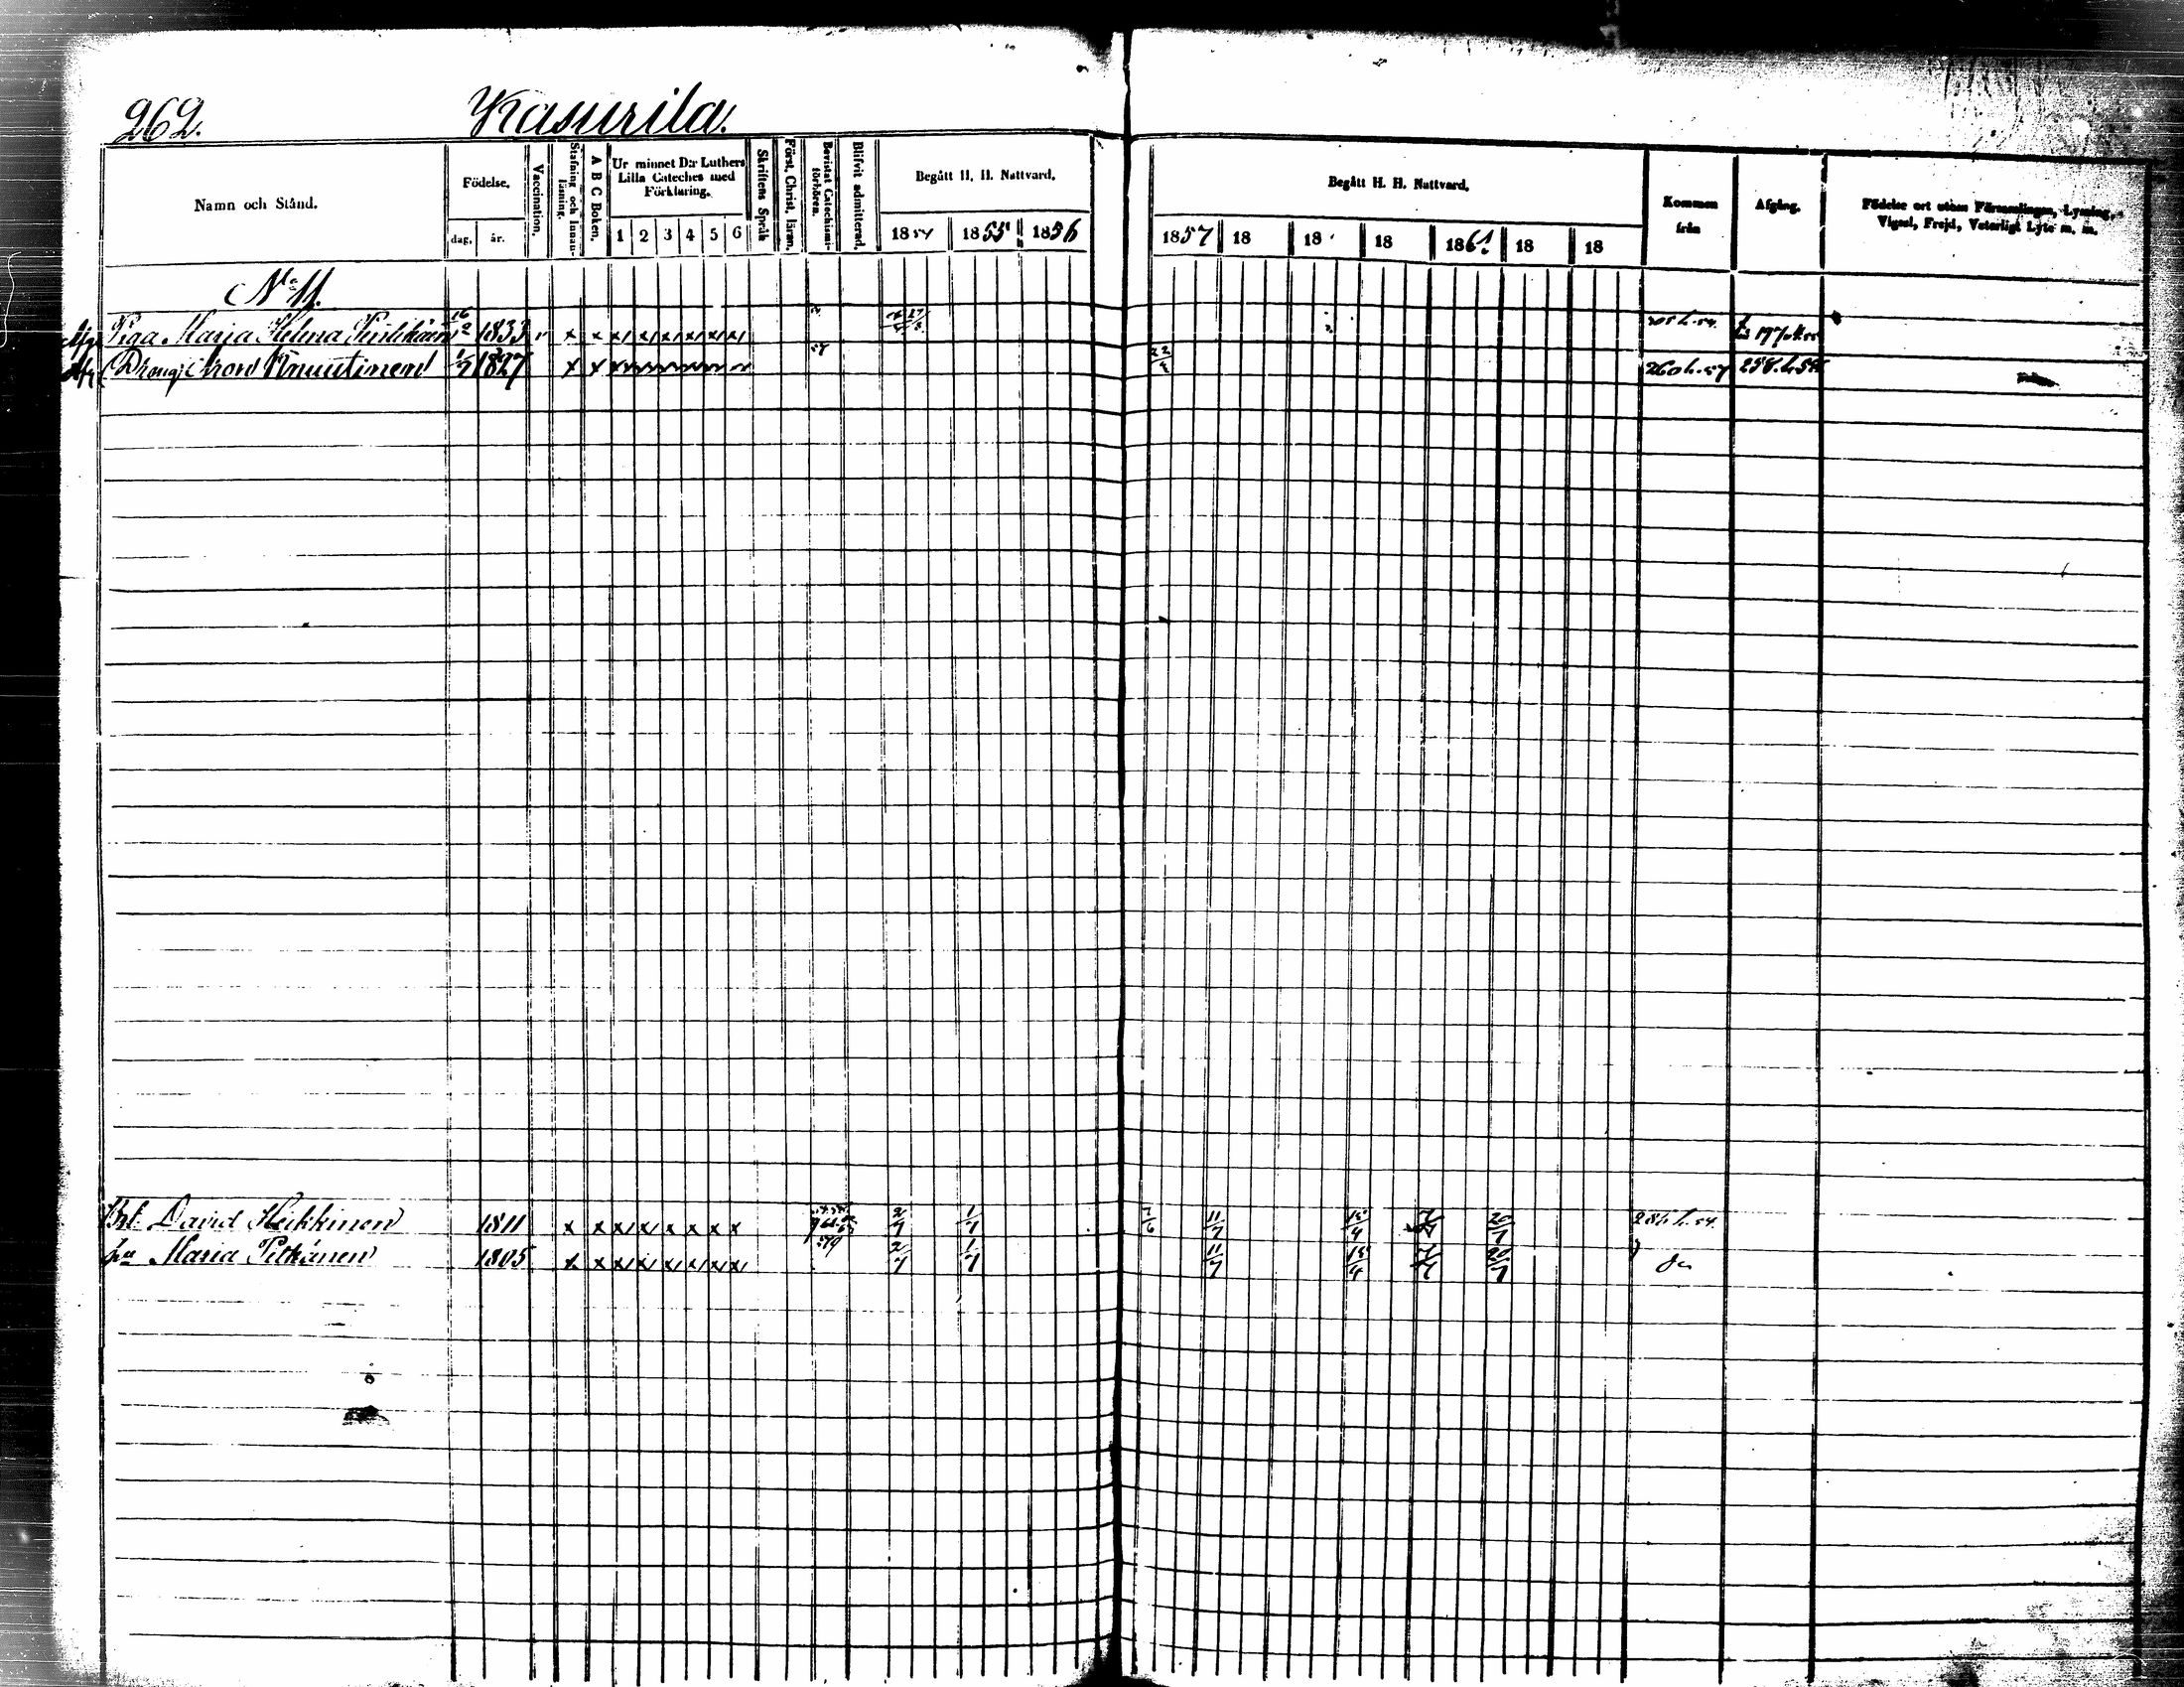 262. Kasurila.
Namn och Stånd. Födelse. Vaccination. Stafning och Innanläsning. A B C Boken. Ur minnet D:r Luthers Lilla Cateches med Förklaring. Skriftens Språk Först. Christ. läran. Bevistat Catechismiförhören. Blifvit admitterad. Begått H. H. Nattvard. Begått H. H. Nattvard. Kommen från Afgång. Födelse ort utom Församlingen, Lysning, Vigsel, Frejd, Veterligt Lyte m. m.
dag. år. 1 2 3 4 5 6 1854 1855 1856 1857 18 18 18 1861 18 18
No 11.
Afg Piga Maria Helena 16/2 1833 x x x x x x x x
Afg Dräng Aron Knuutinen 1/7 1827 x x 57 22/2 260 h. 57 258. h. 58
David Heikkinen 1811 x x x x x x x x 2/7 1/7 7/6 11/7 15/4 20/7
Maria Pitkänen 1805 x x x x x x x x 2/7 1/7 11/7 15/4 20/7